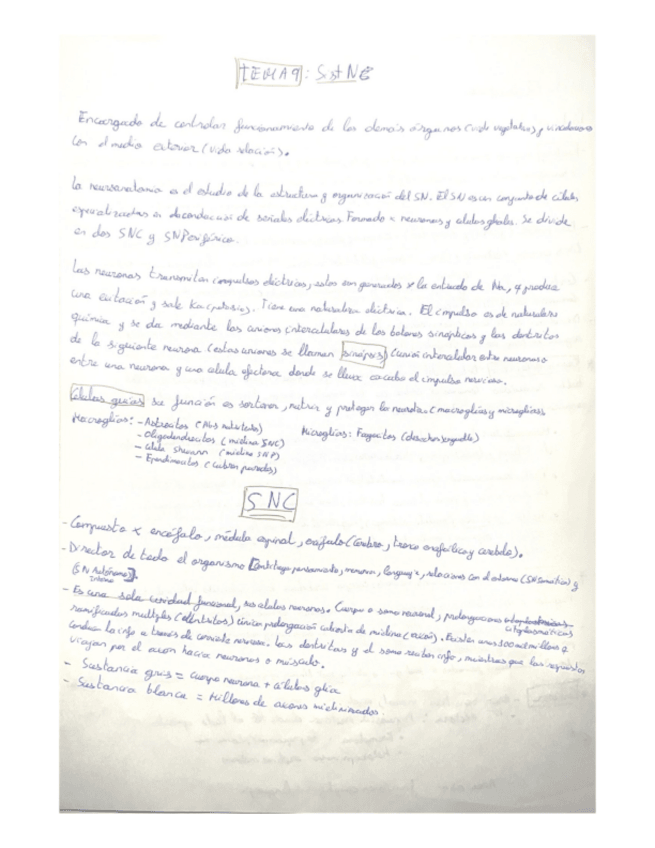 TEMA 9: Sist NE
Encargado de controlar funcionamiento de los demás órganos (vida vegetativa) y vincularnos
con el medio exterior (vida relación).
La neuroanatomia es el estudio de la estructura y organización del SN. El SN es un conjunto de células
especializadas en la conducción de señales eléctricas. Formado x neuronas y células gliales. Se divide
en dos SNC y SNPeriférico.
Las neuronas transmiten impulsos eléctricos, estos son generados x la entrada de Na, q produce
una excitación y sale Ka (potasio). Tiene una naturaleza eléctrica. El impulso es de naturaleza
química y se da mediante las uniones intercelulares de los botones sinápticos y las dentritas
de la siguiente neurona (estas uniones se llaman sinapsis) (unión intercelular entre neuronas o
entre una neurona y una célula efectora donde se lleva a cabo el impulso nervioso.
Células gliales su función es sostener, nutrir y proteger la neurona. (macroglias y microglias)
Macroglias: - Astrocitos Microglias: Fagocitos
- Oligodendrocitos (mielina SNC)
- Célula Shwann (mielina SNP)
- Ependimocitos
SNC
- Compuesto x encéfalo, médula espinal, encéfalo (cerebro, tronco encefálico y cerebelo).
- Director de todo el organismo pensamiento, memoria, lenguaje, relaciones con el externo (SN somático) y
(SN Autónomo)
Interno
- Es una sola unidad funcional, las células neuronas. Cuerpo o soma neuronal, prolongaciones
citoplasmáticas
ramificadas multiples (dentritas) única prolongación cubierta de mielina (axón). Existen unos 100 mil millones q
conducen la info a través de corriente nerviosa. Las dentritas y el soma reciben info, mientras que las respuestas
viajan por el axon hacia neuronas o músculo.
- Sustancia gris = cuerpo neurona + células glia
- Sustancia blanca = Millones de axones mielinizados.